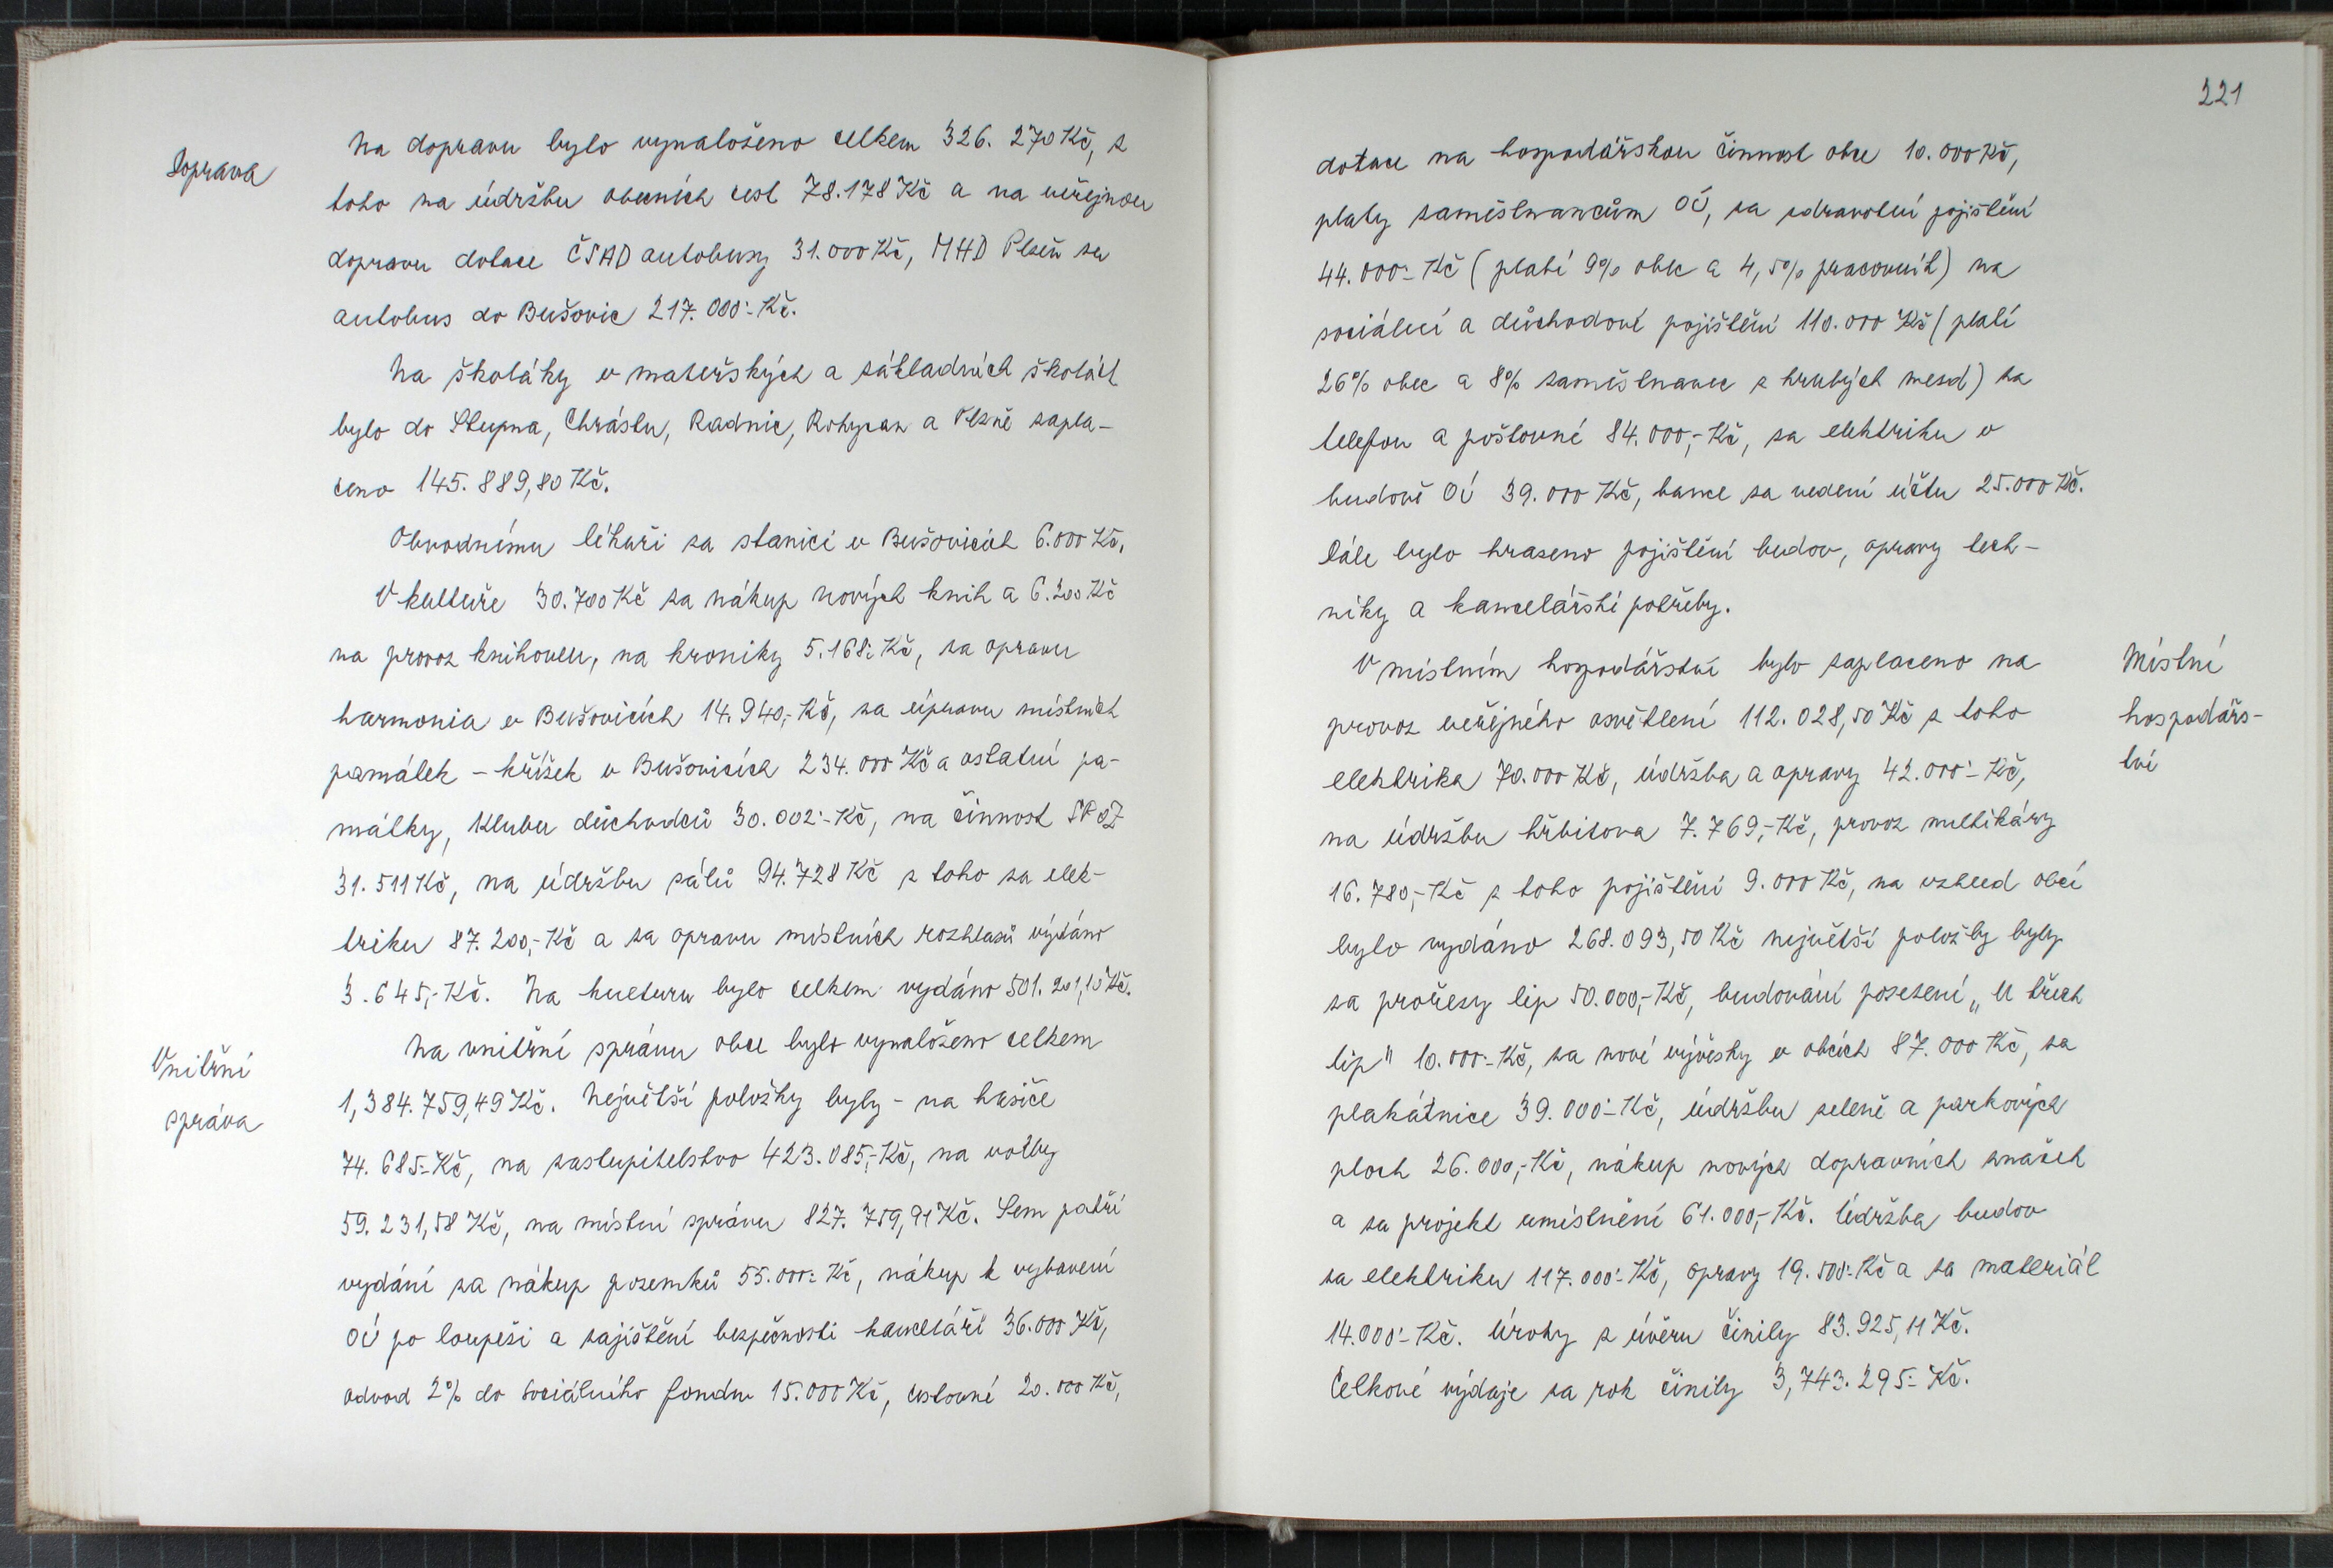 Doprava
Na dopravu bylo vynaloženo celkem 326.270 Kč, z
toho na údržbu obecních cest 78.178 Kč a na veřejnou
dopravu dotace ČSAD autobusy 31.000 Kč, MHD Plzeň za
autobus do Bušovic 217.000,- Kč.
Na školáky v mateřských a základních školách
bylo do Stupna, Chrástu, Radnic, Rokycan a Plzně zapla-
ceno 145.889,80 Kč.
Obvodnímu lékaři za stanici v Bušovicích 6.000 Kč.
V kultuře 30.700 Kč za nákup nových knih a 6.200 Kč
na provoz knihoven, na kroniky 5.168,- Kč, za opravu
harmonia v Bušovicích 14.940,- Kč, za úpravu místních
památek - křížek v Bušovicích 234.000 Kč a ostatní pa-
mátky, Klubu důchodců 30.002,- Kč, na činnost SPOZ
31.511 Kč, na údržbu sálů 94.728 Kč z toho za elek-
triku 87.200,- Kč a za opravu místních rozhlasů vydáno
3.645,- Kč. Na kulturu bylo celkem vydáno 501.201,10 Kč.
Vnitřní
správa
Na vnitřní správu obce bylo vynaloženo celkem
1,384.759,49 Kč. Největší položky byly - na hasiče
74.685,- Kč, na zastupitelstvo 423.085,- Kč, na volby
59.231,58 Kč, na místní správu 827.759,91 Kč. Sem patří
vydání za nákup pozemků 55.000,- Kč, nákup k vybavení
OÚ po loupeži a zajištění bezpečnosti kanceláří 36.000 Kč,
odvod 2% do sociálního fondu 15.000 Kč, cestovné 20.000 Kč,
221
dotace na hospodářskou činnost obce 10.000 Kč,
platy zaměstnancům OÚ, za zdravotní pojištění
44.000,- Kč (platí 9% obec a 4,5% pracovník) na
sociální a důchodové pojištění 110.000 Kč (platí
26% obec a 8% zaměstnanec z hrubých mezd) za
telefon a poštovné 84.000,- Kč, za elektriku v
budově OÚ 39.000 Kč, bance za vedení účtu 25.000 Kč.
Dále bylo hrazeno pojištění budov, opravy tech-
niky a kancelářské potřeby.
Místní
hospodářs-
tví
V místním hospodářství bylo zaplaceno na
provoz veřejného osvětlení 112.028,50 Kč z toho
elektrika 70.000 Kč, údržba a opravy 42.000,- Kč,
na údržbu hřbitova 7.769,- Kč, provoz multikáry
16.780,- Kč z toho pojištění 9.000 Kč, na vzhled obcí
bylo vydáno 268.093,50 Kč největší položky byly
za prořezy lip 50.000,- Kč, budování posezení „U třech
lip" 10.000,- Kč, za nové vývěsky v obcích 87.000 Kč, za
plakátnice 39.000,- Kč, údržbu zeleně a parkových
ploch 26.000,- Kč, nákup nových dopravních značek
a za projekt umístnění 61.000,- Kč. Údržba budov
za elektriku 117.000,- Kč, opravy 19.500,- Kč a za materiál
14.000,- Kč. Úroky z úvěru činily 83.925,11 Kč.
Celkové výdaje za rok činily 3,743.295,- Kč.